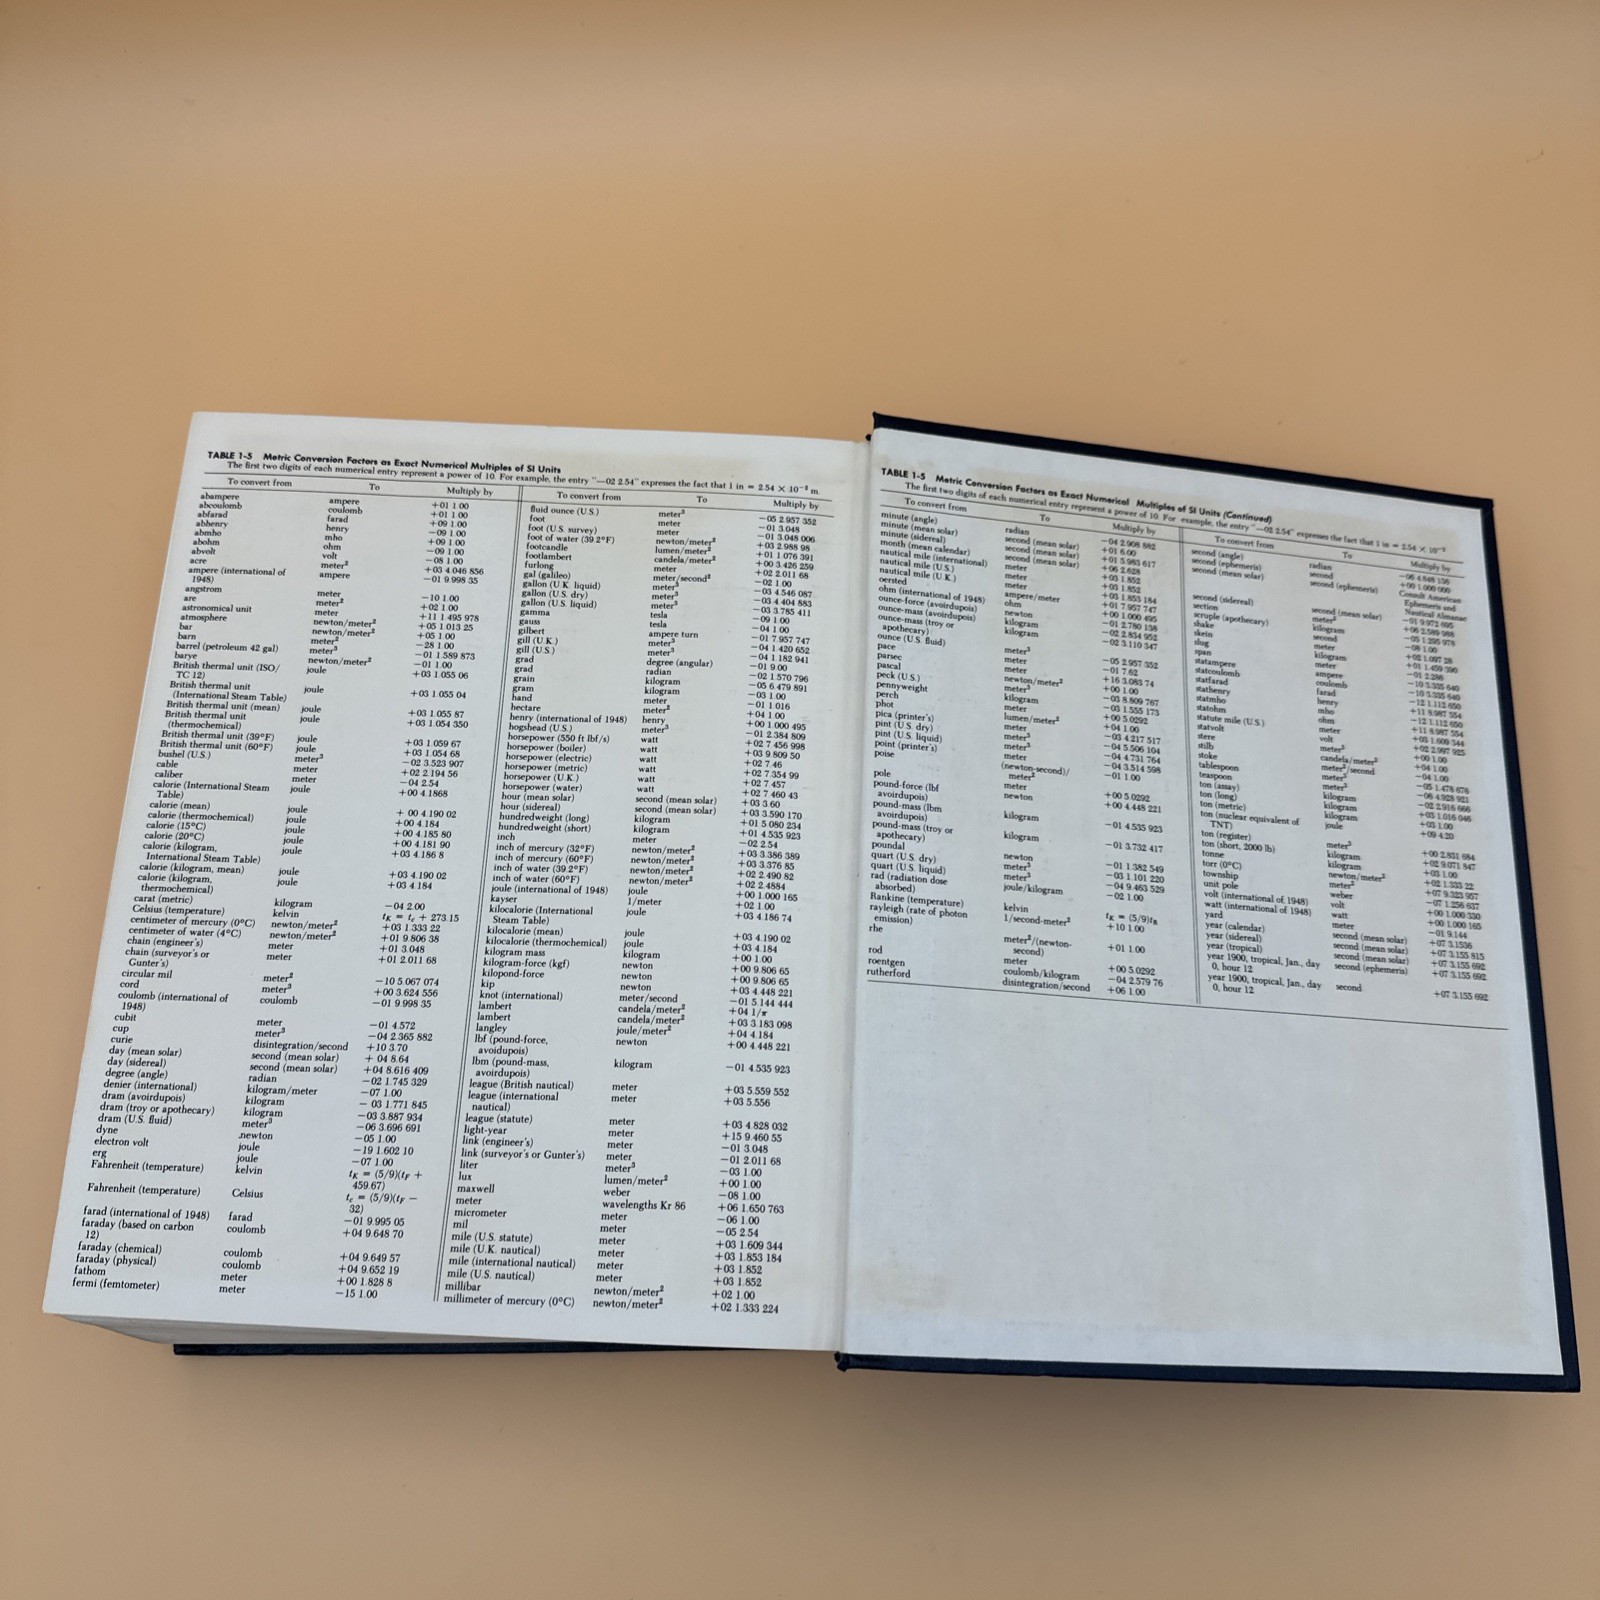 TABLE 1-5 Metric Conversion Factors as Exact Numerical Multiples of SI Units
The first two digits of each numerical entry represent a power of 10. For example, the entry "−02 2.54" expresses the fact that 1 in = 2.54 × 10⁻² m.
To convert from To Multiply by
abampere ampere +01 1.00
abcoulomb coulomb +01 1.00
abfarad farad +09 1.00
abhenry henry −09 1.00
abmho mho +09 1.00
abohm ohm −09 1.00
abvolt volt −08 1.00
acre meter² +03 4.046 856
ampere (international of ampere −01 9.998 35
1948)
angstrom meter −10 1.00
are meter² +02 1.00
astronomical unit meter +11 1.495 978
atmosphere newton/meter² +05 1.013 25
bar newton/meter² +05 1.00
barn meter² −28 1.00
barrel (petroleum 42 gal) meter³ −01 1.589 873
barye newton/meter² −01 1.00
British thermal unit (ISO/ joule +03 1.055 06
TC 12)
British thermal unit joule +03 1.055 04
(International Steam Table)
British thermal unit (mean) joule +03 1.055 87
British thermal unit joule +03 1.054 350
(thermochemical)
British thermal unit (39°F) joule +03 1.059 67
British thermal unit (60°F) joule +03 1.054 68
bushel (U.S.) meter³ −02 3.523 907
cable meter +02 2.194 56
caliber meter −04 2.54
calorie (International Steam joule +00 4.1868
Table)
calorie (mean) joule + 00 4.190 02
calorie (thermochemical) joule +00 4.184
calorie (15°C) joule +00 4.185 80
calorie (20°C) joule +00 4.181 90
calorie (kilogram, joule +03 4.186 8
International Steam Table)
calorie (kilogram, mean) joule +03 4.190 02
calorie (kilogram, joule +03 4.184
thermochemical)
carat (metric) kilogram −04 2.00
Celsius (temperature) kelvin tK = tc + 273.15
centimeter of mercury (0°C) newton/meter² +03 1.333 22
centimeter of water (4°C) newton/meter² +01 9.806 38
chain (engineer's) meter +01 3.048
chain (surveyor's or meter +01 2.011 68
Gunter's)
circular mil meter² −10 5.067 074
cord meter³ +00 3.624 556
coulomb (international of coulomb −01 9.998 35
1948)
cubit meter −01 4.572
cup meter³ −04 2.365 882
curie disintegration/second +10 3.70
day (mean solar) second (mean solar) + 04 8.64
day (sidereal) second (mean solar) +04 8.616 409
degree (angle) radian −02 1.745 329
denier (international) kilogram/meter −07 1.00
dram (avoirdupois) kilogram − 03 1.771 845
dram (troy or apothecary) kilogram −03 3.887 934
dram (U.S. fluid) meter³ −06 3.696 691
dyne newton −05 1.00
electron volt joule −19 1.602 10
erg joule −07 1.00
Fahrenheit (temperature) kelvin tK = (5/9)(tF +
459.67)
Fahrenheit (temperature) Celsius tc = (5/9)(tF −
32)
farad (international of 1948) farad −01 9.995 05
faraday (based on carbon coulomb +04 9.648 70
12)
faraday (chemical) coulomb +04 9.649 57
faraday (physical) coulomb +04 9.652 19
fathom meter +00 1.828 8
fermi (femtometer) meter −15 1.00
To convert from To Multiply by
fluid ounce (U.S.) meter³ −05 2.957 352
foot meter −01 3.048
foot (U.S. survey) meter −01 3.048 006
foot of water (39.2°F) newton/meter² +03 2.988 98
footcandle lumen/meter² +01 1.076 391
footlambert candela/meter² +00 3.426 259
furlong meter +02 2.011 68
gal (galileo) meter/second² −02 1.00
gallon (U.K. liquid) meter³ −03 4.546 087
gallon (U.S. dry) meter³ −03 4.404 883
gallon (U.S. liquid) meter³ −03 3.785 411
gamma tesla −09 1.00
gauss tesla −04 1.00
gilbert ampere turn −01 7.957 747
gill (U.K.) meter³ −04 1.420 652
gill (U.S.) meter³ −04 1.182 941
grad degree (angular) −01 9.00
grad radian −02 1.570 796
grain kilogram −05 6.479 891
gram kilogram −03 1.00
hand meter −01 1.016
hectare meter² +04 1.00
henry (international of 1948) henry +00 1.000 495
hogshead (U.S.) meter³ −01 2.384 809
horsepower (550 ft lbf/s) watt +02 7.456 998
horsepower (boiler) watt +03 9.809 50
horsepower (electric) watt +02 7.46
horsepower (metric) watt +02 7.354 99
horsepower (U.K.) watt +02 7.457
horsepower (water) watt +02 7.460 43
hour (mean solar) second (mean solar) +03 3.60
hour (sidereal) second (mean solar) +03 3.590 170
hundredweight (long) kilogram +01 5.080 234
hundredweight (short) kilogram +01 4.535 923
inch meter −02 2.54
inch of mercury (32°F) newton/meter² +03 3.386 389
inch of mercury (60°F) newton/meter² +03 3.376 85
inch of water (39.2°F) newton/meter² +02 2.490 82
inch of water (60°F) newton/meter² +02 2.4884
joule (international of 1948) joule +00 1.000 165
kayser 1/meter +02 1.00
kilocalorie (International joule +03 4.186 74
Steam Table)
kilocalorie (mean) joule +03 4.190 02
kilocalorie (thermochemical) joule +03 4.184
kilogram mass kilogram +00 1.00
kilogram-force (kgf) newton +00 9.806 65
kilopond-force newton +00 9.806 65
kip newton +03 4.448 221
knot (international) meter/second −01 5.144 444
lambert candela/meter² +04 1/π
lambert candela/meter² +03 3.183 098
langley joule/meter² +04 4.184
lbf (pound-force, newton +00 4.448 221
avoidupois)
lbm (pound-mass, kilogram −01 4.535 923
avoirdupois)
league (British nautical) meter +03 5.559 552
league (international meter +03 5.556
nautical)
league (statute) meter +03 4.828 032
light-year meter +15 9.460 55
link (engineer's) meter −01 3.048
link (surveyor's or Gunter's) meter −01 2.011 68
liter meter³ −03 1.00
lux lumen/meter² +00 1.00
maxwell weber −08 1.00
meter wavelengths Kr 86 +06 1.650 763
micrometer meter −06 1.00
mil meter −05 2.54
mile (U.S. statute) meter +03 1.609 344
mile (U.K. nautical) meter +03 1.853 184
mile (international nautical) meter +03 1.852
mile (U.S. nautical) meter +03 1.852
millibar newton/meter² +02 1.00
millimeter of mercury (0°C) newton/meter² +02 1.333 224
TABLE 1-5 Metric Conversion Factors as Exact Numerical Multiples of SI Units (Continued)
The first two digits of each numerical entry represent a power of 10. For example, the entry "−02 2.54" expresses the fact that 1 in = 2.54 × 10⁻²
To convert from To Multiply by
minute (angle) radian −04 2.908 882
minute (mean solar) second (mean solar) +01 6.00
minute (sidereal) second (mean solar) +01 5.983 617
month (mean calendar) second (mean solar) +06 2.628
nautical mile (international) meter +03 1.852
nautical mile (U.S.) meter +03 1.852
nautical mile (U.K.) meter +03 1.853 184
oersted ampere/meter +01 7.957 747
ohm (international of 1948) ohm +00 1.000 495
ounce-force (avoirdupois) newton −01 2.780 138
ounce-mass (avoirdupois) kilogram −02 2.834 952
ounce-mass (troy or kilogram −02 3.110 347
apothecary)
ounce (U.S. fluid) meter³ −05 2.957 352
pace meter −01 7.62
parsec meter +16 3.083 74
pascal newton/meter² +00 1.00
peck (U.S.) meter³ −03 8.809 767
pennyweight kilogram −03 1.555 173
perch meter +00 5.0292
phot lumen/meter² +04 1.00
pica (printer's) meter −03 4.217 517
pint (U.S. dry) meter³ −04 5.506 104
pint (U.S. liquid) meter³ −04 4.731 764
point (printer's) meter −04 3.514 598
poise (newton-second)/ −01 1.00
meter²
pole meter +00 5.0292
pound-force (lbf newton +00 4.448 221
avoirdupois)
pound-mass (lbm kilogram −01 4.535 923
avoirdupois)
pound-mass (troy or kilogram −01 3.732 417
apothecary)
poundal newton −01 1.382 549
quart (U.S. dry) meter³ −03 1.101 220
quart (U.S. liquid) meter³ −04 9.463 529
rad (radiation dose joule/kilogram −02 1.00
absorbed)
Rankine (temperature) kelvin tK = (5/9)tR
rayleigh (rate of photon 1/second-meter² +10 1.00
emission)
rhe meter²/(newton- +01 1.00
second)
rod meter +00 5.0292
roentgen coulomb/kilogram −04 2.579 76
rutherford disintegration/second +06 1.00
To convert from To Multiply by
second (angle) radian −06 4.848 136
second (ephemeris) second +00 1.000 000
second (mean solar) second (ephemeris) Consult American
Ephemeris and
Nautical Almanac
second (sidereal) second (mean solar) −01 9.972 695
section meter² +06 2.589 988
scruple (apothecary) kilogram −03 1.295 978
shake second −08 1.00
skein meter +02 1.097 28
slug kilogram +01 1.459 390
span meter −01 2.286
statampere ampere −10 3.335 640
statcoulomb coulomb −10 3.335 640
statfarad farad −12 1.112 650
stathenry henry +11 8.987 554
statmho mho −12 1.112 650
statohm ohm +11 8.987 554
statute mile (U.S.) meter +03 1.609 344
statvolt volt +02 2.997 925
stere meter³ +00 1.00
stilb candela/meter² +04 1.00
stoke meter²/second −04 1.00
tablespoon meter³ −05 1.478 676
teaspoon meter³ −06 4.928 921
ton (assay) kilogram −02 2.916 666
ton (long) kilogram +03 1.016 046
ton (metric) kilogram +03 1.00
ton (nuclear equivalent of joule +09 4.20
TNT)
ton (register) meter³ +00 2.831 684
ton (short, 2000 lb) kilogram +02 9.071 847
tonne kilogram +03 1.00
torr (0°C) newton/meter² +02 1.333 22
township meter² +07 9.323 957
unit pole weber −07 1.256 637
volt (international of 1948) volt +00 1.000 330
watt (international of 1948) watt +00 1.000 165
yard meter −01 9.144
year (calendar) second (mean solar) +07 3.1536
year (sidereal) second (mean solar) +07 3.155 815
year (tropical) second (mean solar) +07 3.155 692
year 1900, tropical, Jan., day second (ephemeris) +07 3.155 692
0, hour 12
year 1900, tropical, Jan., day second +07 3.155 692
0, hour 12